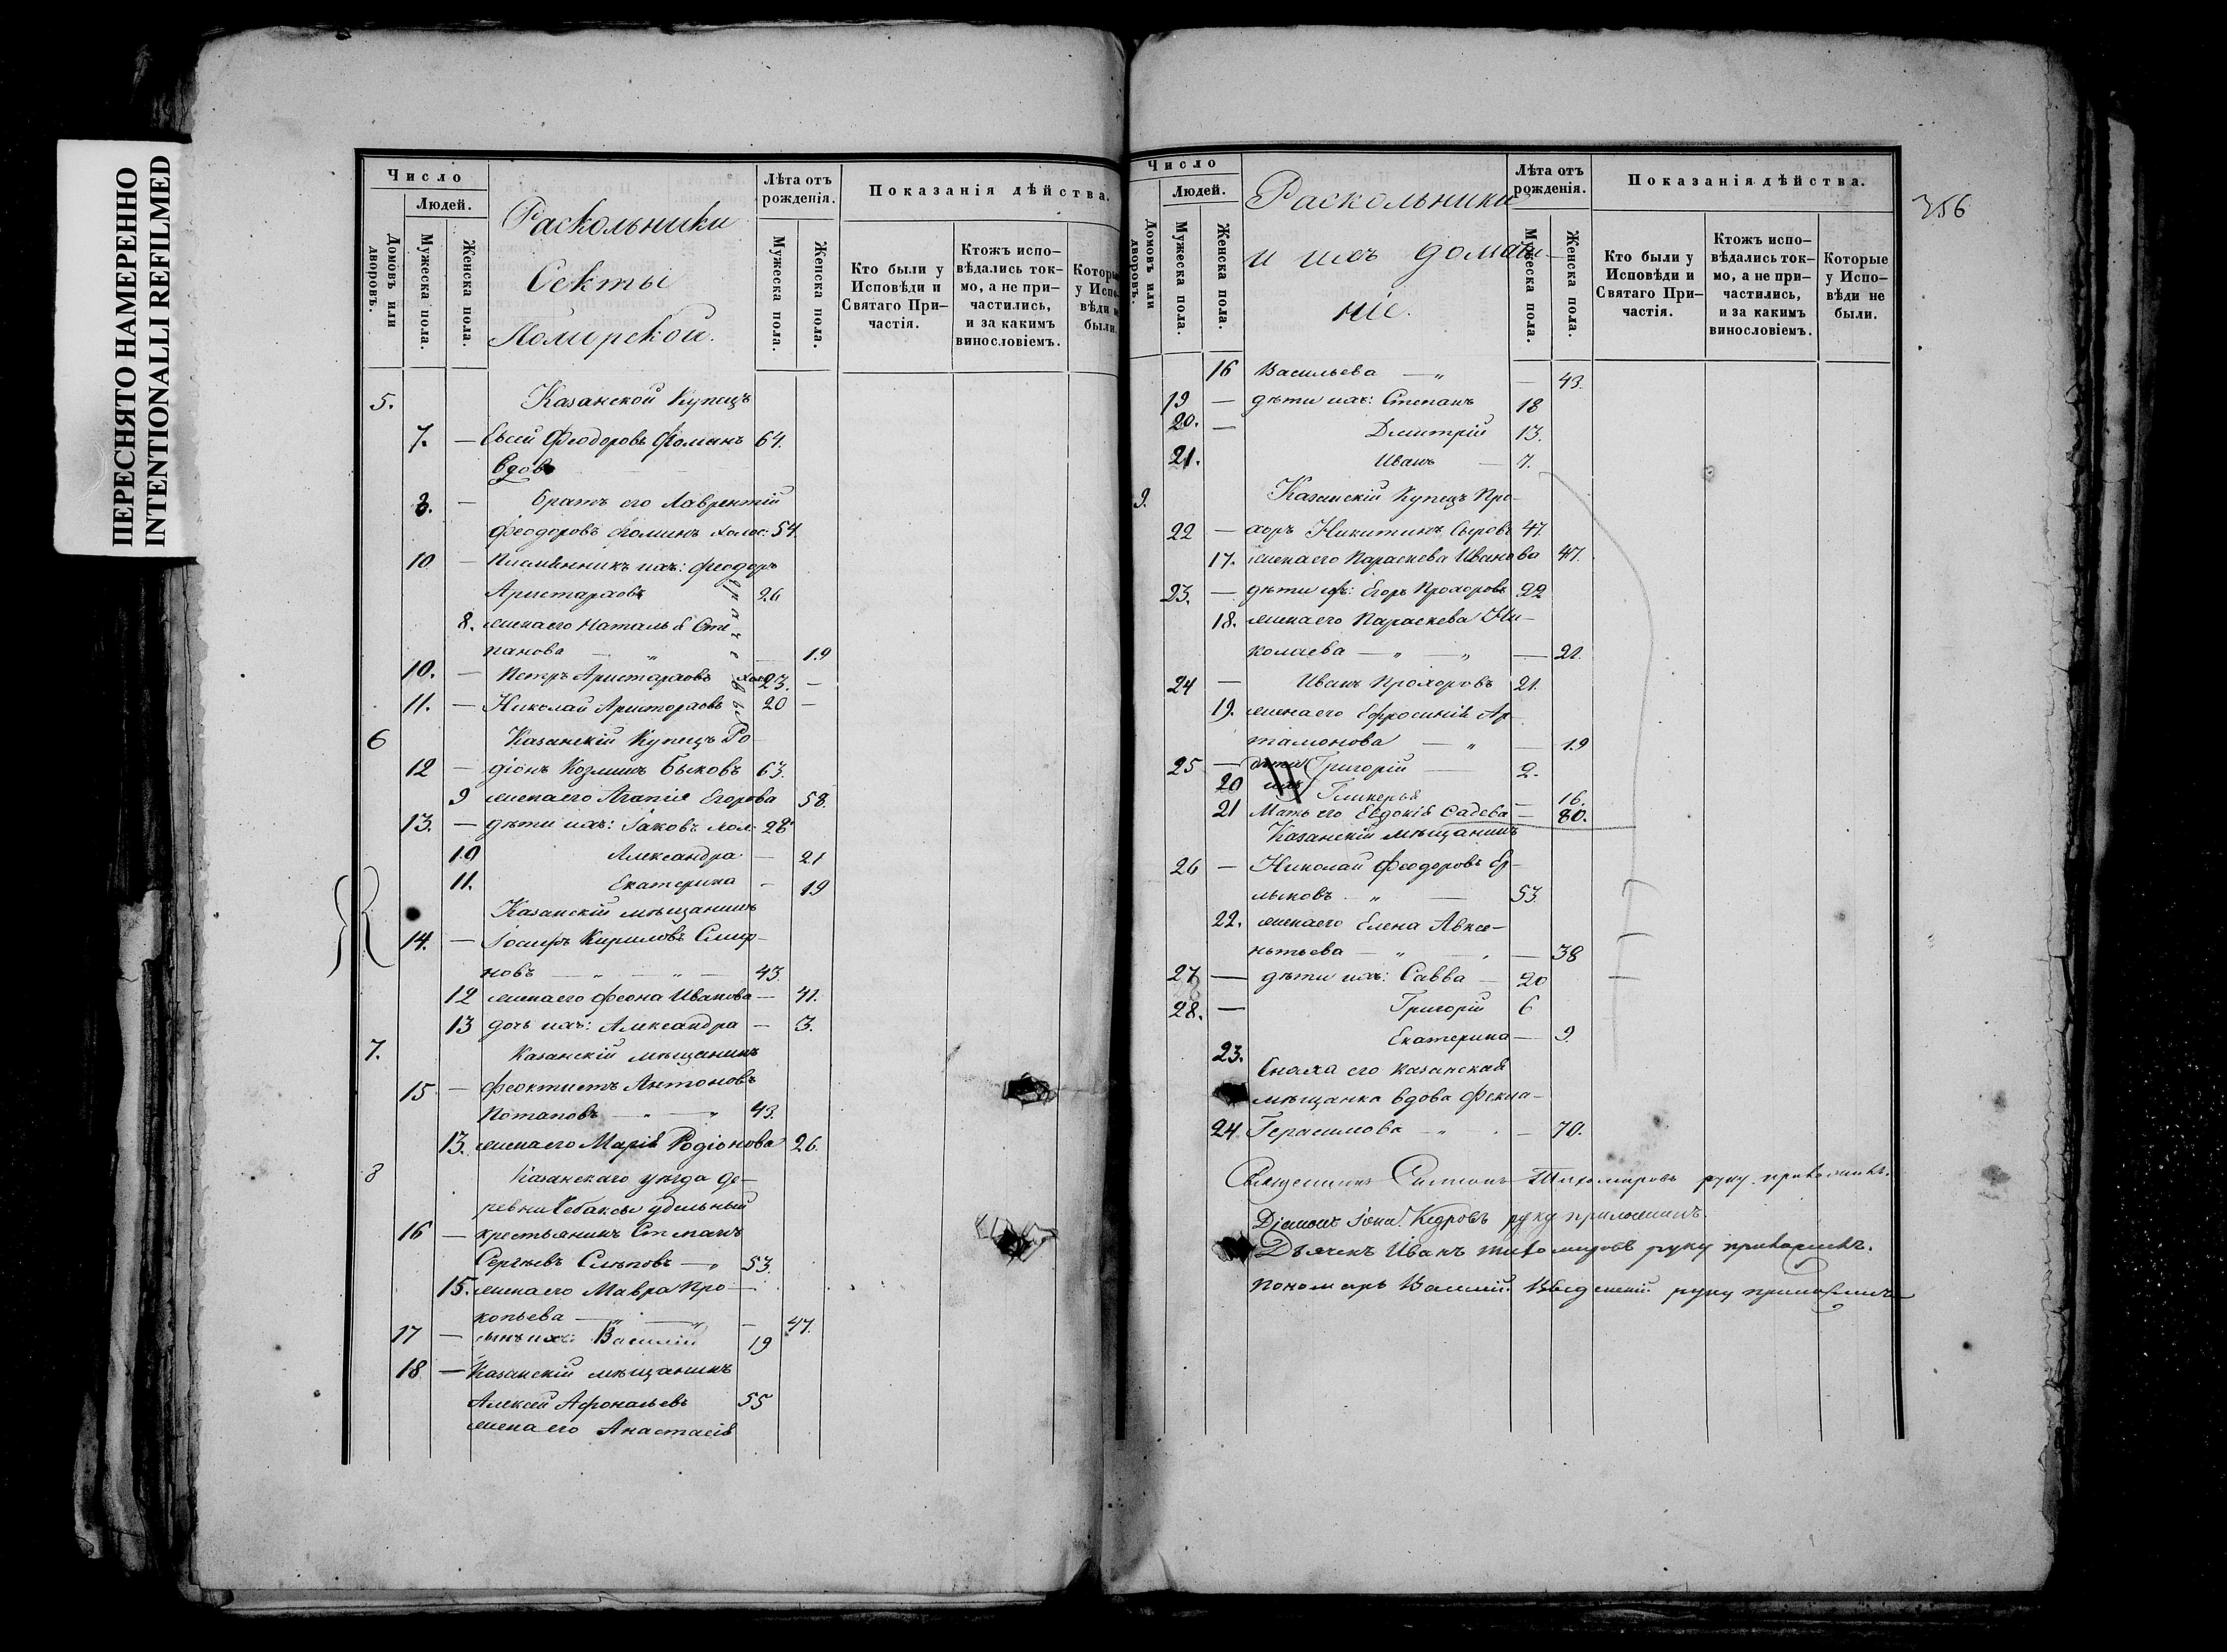 ПЕРЕСНЯТО НАМЕРЕННО
INTENTIONALLI REFILMED
Число
Людей.
Домовъ или дворовъ.
Мужеска пола.
Женска пола.
Раскольники
Секты
Поморской.
Лѣта отъ рожденія.
Мужеска пола.
Женска пола.
Показанія дѣйства.
Кто были у Исповѣди и Святаго Причастія.
Ктожъ исповѣдались токмо, а не причастились, и за какимъ винословіемъ.
Которые у Исповѣди не были.
5. Казанской Купецъ
7. — Евсей Феодоровъ Фоминъ 64.
вдов
8. — братъ его Лаврентій
Феодоровъ Фоминъ холос: 54
10 — Племянникъ ихъ: Феодоръ
Аристарховъ 26
8. жена его Наталья Сте-
панова — „ — 19
10. — Петръ Аристарховъ хол 23. —
11. — Николай Аристарховъ 20 —
6 Казанскій Купецъ Ро-
12 — діонъ Козминъ Быковъ 63.
9 жена его Агапія Егорова 58.
13. — дѣти ихъ: Іаковъ хол 28
10 Александра — 21
11. Екатерина — 19
Казанскій мѣщанинъ
14. — Іосифъ Кириловъ Смир-
новъ — „ — „ — 43.
12 жена его Феона Иванова — 41.
13 дочь ихъ: Александра — 3.
7. Казанскій мѣщанинъ
15 — Феоктистъ Антоновъ
Потаповъ — „ — „ 43.
13. жена его Марія Родіонова 26.
8 Казанскаго уѣзда де-
ревни Кебаксы удельный
16 — крестьянинъ Степанъ
Сергѣевъ Слѣповъ — „ 53.
15. жена его Мавра Про-
копьева — „ — „ — 47.
17 — сынъ ихъ: Василій 19
18 — Казанскій мѣщанинъ
Алексей Афонасьевъ 55
жена его Анастасія
Число
Людей.
Домовъ или дворовъ.
Мужеска пола.
Женска пола.
Раскольники
и ихъ домаш-
ніе.
Лѣта отъ рожденія.
Мужеска пола.
Женска пола.
Показанія дѣйства.
Кто были у Исповѣди и Святаго Причастія.
Ктожъ исповѣдались токмо, а не причастились, и за какимъ винословіемъ.
Которые у Исповѣди не были.
356
16 Васильева — „ — 43.
19 — дѣти ихъ: Степанъ 18
20. — Дмитрій 13.
21. Иванъ — 7.
9. Казанскій Купецъ Про-
22 — хоръ Никитинъ Сыровъ 47.
17. жена его Параскева Иванова 47.
23. — дѣти ихъ: Егоръ Прохоровъ 22
18. жена его Параскева Ни-
колаева — „ — „ — 21.
24 — Иванъ Прохоровъ 21.
19. жена его Ефросинія Ар-
тамонова — „ — 19
25 — дѣти Григорій — 2.
20 ихъ Гликерья — 16.
21 Мать его Евдокія Савева — 80.
Казанскій мѣщанинъ
26 — Николай Феодоровъ Ер-
мыковъ „ — 53.
22. жена его Елена Авксе-
нтьева — „ — 38
27 — дѣти ихъ: Савва — 20
28. — Григорій 6
23. Екатерина — 9.
Сноха его казанская
мѣщанка вдова Фекла
24 Герасимова — „ — 70.
Священникъ Симеонъ Тихомировъ руку приложилъ.
Діаконъ Іона Кедровъ руку приложилъ.
Дьячекъ Иванъ Тихомировъ руку приложилъ.
Пономарь Василий Введенский руку приложилъ